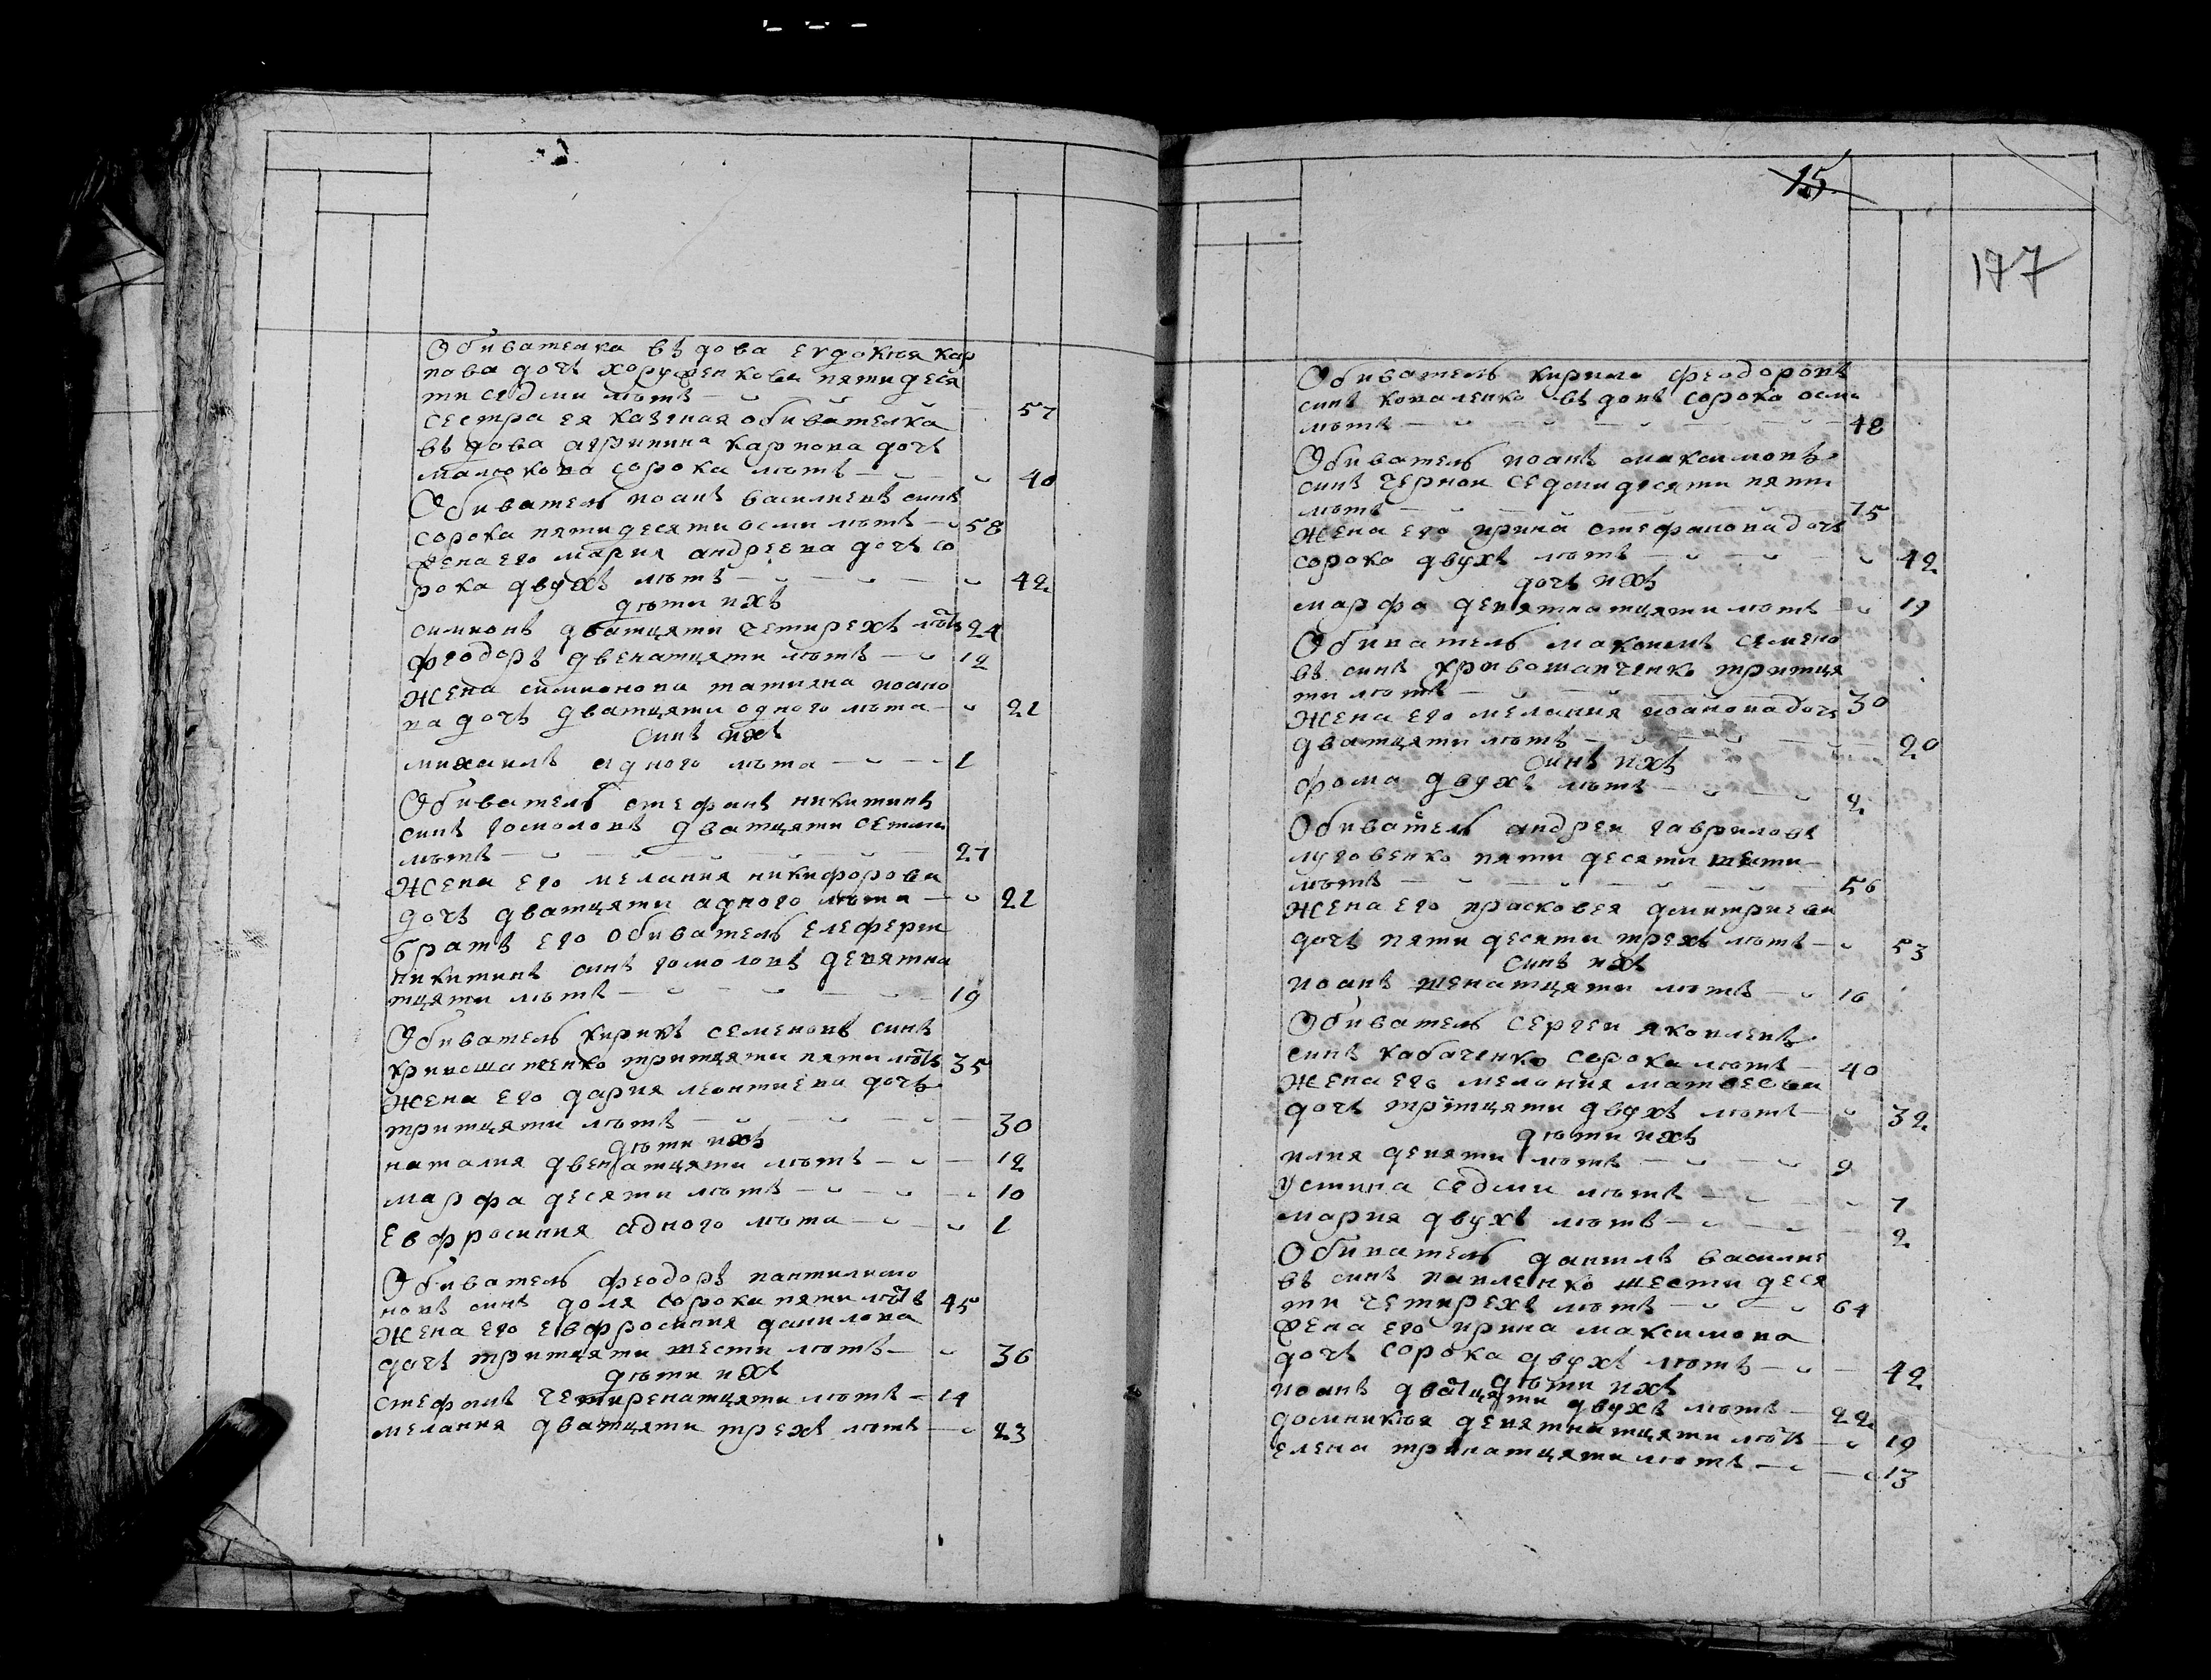 Обивателка въдова евдокия кар
пова дочъ хоруженкова пятидеся
ти седми лѣтъ 57
сестра ея казеная обивателка
въдова агрипина карпова дочъ
малюкова сорока лѣтъ 40
Обиватель иоанъ василиевъ синъ
сорока пятидесяти осми лѣтъ 58
жена его мария андреева дочъ со
рока двухъ лѣтъ 42
дѣти ихъ
симионъ дватцяти четирехъ лѣтъ 24
феодоръ двенатцяти лѣтъ 12
Жена симионова татияна иоано
ва дочъ дватцяти одного лѣта 21
Синъ ихъ
михаилъ одного лѣта 1
Обиватель стефанъ никитинъ
синъ гомоловъ дватцяти семи
лѣтъ 27
Жена его мелания никифорова
дочъ дватцяти адного лѣта 21
братъ его обиватель елефери
никитинъ синъ гомоловъ девятна
тцяти лѣтъ 19
Обиватель кирикъ семеновъ синъ
кривошапченко тритцяти пяти лѣтъ 35
Жена его дария леонтиева дочъ
тритцяти лѣтъ 30
дѣти ихъ
наталия двенатцяти лѣтъ 12
марфа десяти лѣтъ 10
Евфросиния адного лѣта 1
Обиватель феодоръ пантилимо
новъ синъ доля сорока пяти лѣтъ 45
Жена его Евфросиния данилова
дочъ тритцяти шести лѣтъ 36
дѣти ихъ
стефанъ четиренатцяти лѣтъ 14
мелания дватцяти трехъ лѣтъ 23
15
177
Обиватель кирило феодоровъ
синъ коваленко въдовъ сорока осми
лѣтъ 48
Обиватель иоанъ максимовъ
синъ чернои седмидесяти пяти
лѣтъ 75
Жена его ирина стефанова дочъ
сорока двухъ лѣтъ 42
дочъ ихъ
марфа девятнатцяти лѣтъ 19
Обиватель максимъ семено
въ синъ кривошапченко тритця
ти лѣтъ 30
Жена его мелания иоанова дочъ
дватцяти лѣтъ 20
Синъ ихъ
фома двухъ лѣтъ 2
Обиватель андреи гавриловъ
луговенко пяти десяти шести
лѣтъ 56
Жена его прасковея дмитриева
дочъ пяти десяти трехъ лѣтъ 53
Синъ ихъ
иоанъ шенатцяти лѣтъ 16
Обиватель сергеи яковлевъ
синъ кабаченко сорока лѣтъ 40
Жена его мелания матвеева
дочъ тритцяти двухъ лѣтъ 32
дѣти ихъ
илия девяти лѣтъ 9
Устина седми лѣтъ 7
мария двухъ лѣтъ 2
Обиватель даниилъ василие
въ синъ павленко шести деся
ти четирехъ лѣтъ 64
жена его ирина максимова
дочъ сорока двухъ лѣтъ 42
дѣти ихъ
иоанъ дватцяти двухъ лѣтъ 22
домникия девятнатцяти лѣтъ 19
елена тринатцяти лѣтъ 13